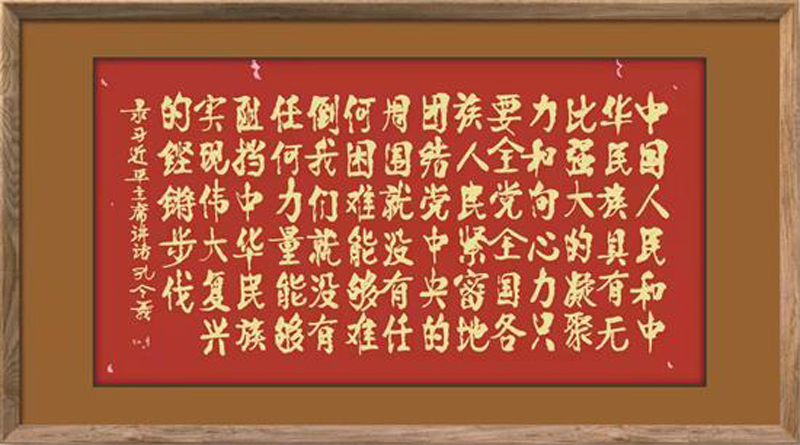 中国人民和中
华民族具有无
比强大的凝聚
力和向心力只
要全党全国各
族人民紧密地
团结党中央的
周围就没有任
何困难能够难
倒我们就没有
任何力量能够
阻挡中华民族
实现伟大复兴
的铿锵步伐
录习近平主席讲话孔令義